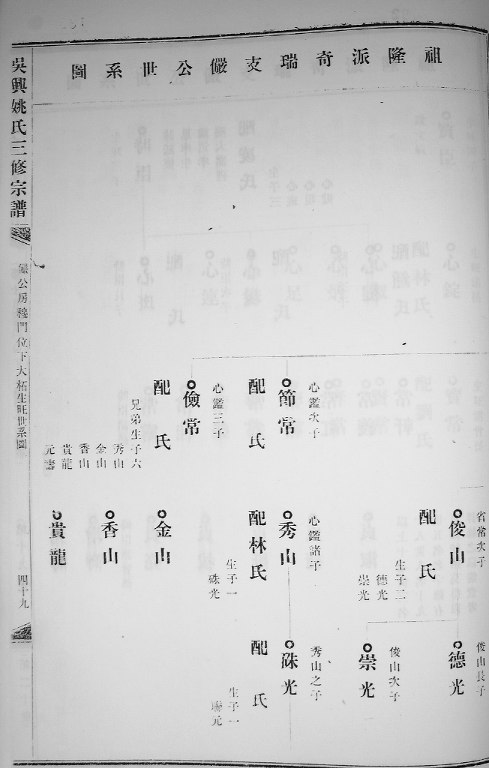 祖隆派奇瑞支儼公世系圖
省常次子
俊山
配 氏
生子二
德光
崇光
俊山長子
德光
俊山次子
崇光
心鑑次子
節常
配 氏
心鑑諸子
秀山
配林氏
生子一
硃光
秀山之子
硃光
配 氏
生子一
心鑑三子
儉常
配 氏
兄弟生子六
秀山
金山
香山
貴龍
元壽
金山
香山
貴龍
吳興姚氏三修宗譜
公房
門位下大栢生旺世系圖
四十九